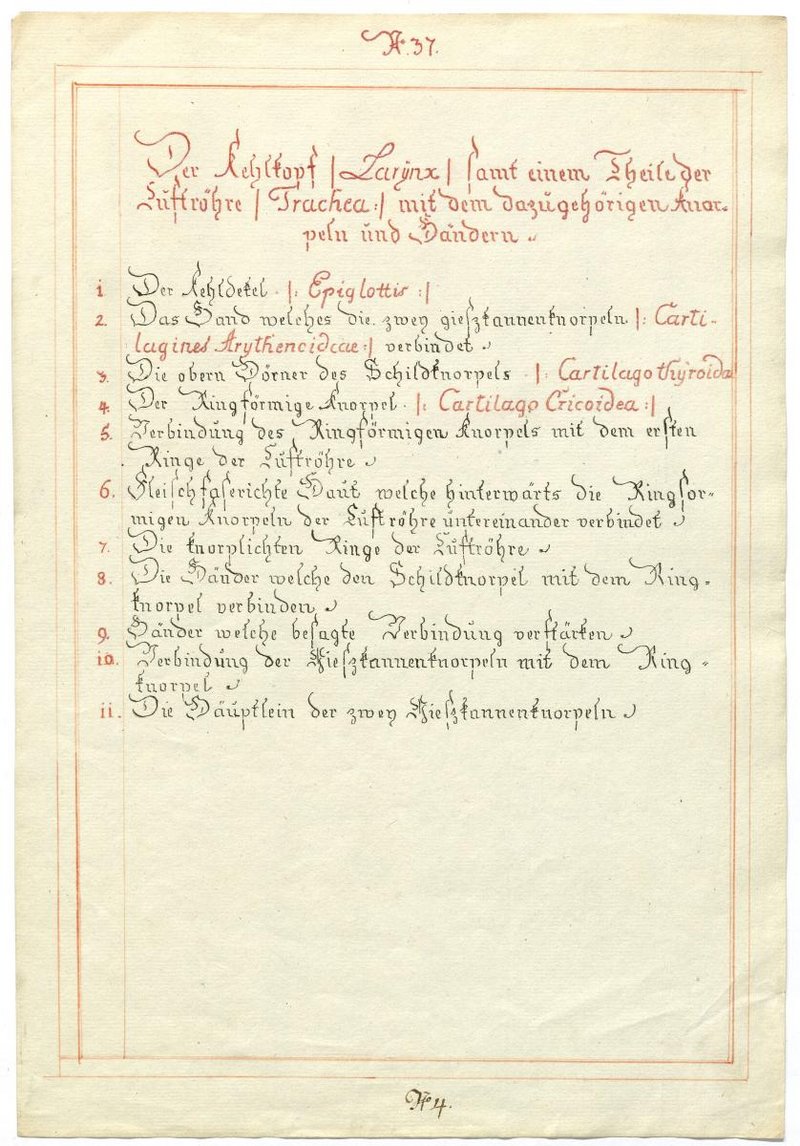 No. 37.
Der Kehlkopf |Larÿnx| samt einem Theile der
Luftröhre |Trachea:| mit dem dazugehörigen Knor-
peln und Bändern.
1 Der Kehldekel |: Epiglottis :|
2. Das Band welches die zwey gieszkannenknorpeln |: Carti-
lagines Arythenoideae:| verbindet
3. Die obern Hörner des Schildknorpels |: Cartilago thÿroidæ
4. Der Ringförmige Knorpel |: Cartilago Cricoidea :|
5. Verbindung des Ringförmigen Knorpels mit dem ersten
Ringe der Luftröhre
6. Fleischfaserichte Haut welche hinterwärts die Ringför-
migen Knorpeln der Luftröhre untereinander verbindet
7. Die knorplichten Ringe der Luftröhre
8. Die Bänder welche den Schildknorpel mit dem Ring-
knorpel verbinden
9. Bänder welche besagte Verbindung verstärken
10. Verbindung der Gieszkannenknorpeln mit dem Ring-
knorpel
11. Die Häuptlein der zwey Gieszkannenknorpeln
No 4.